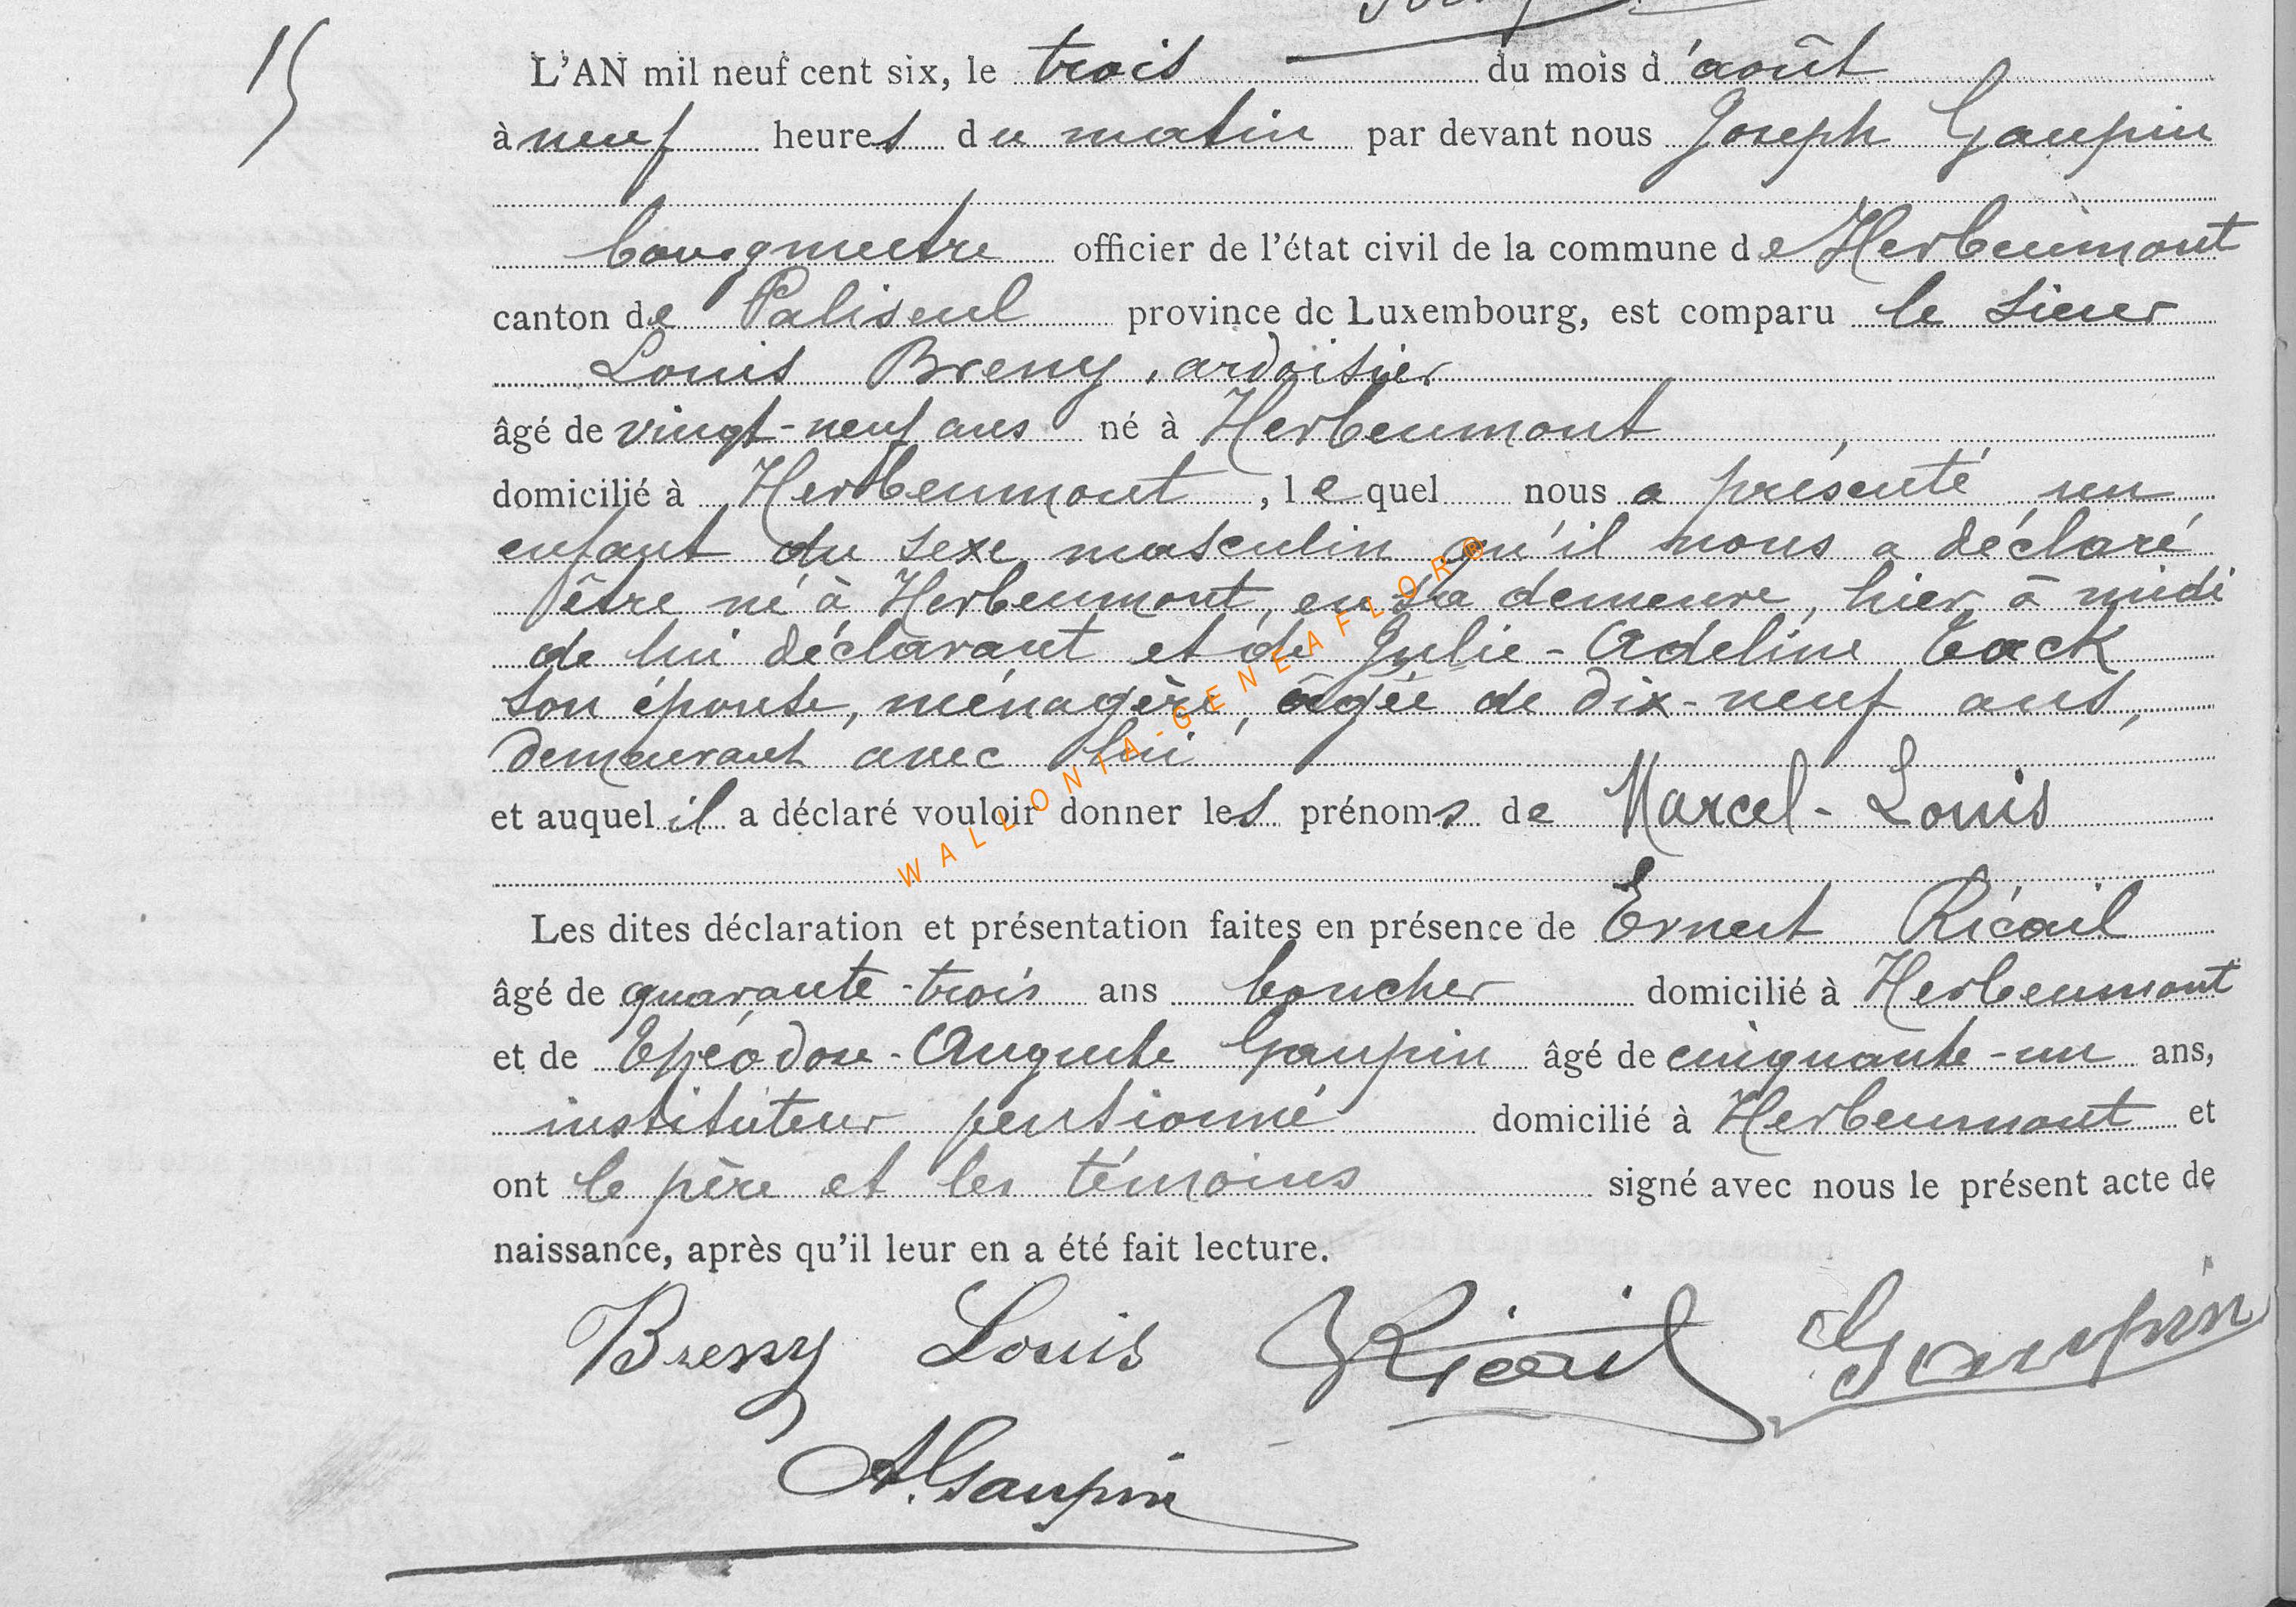 15
L'AN mil neuf cent six, le trois du mois d'août
à neuf heures du matin par devant nous Joseph Gaupin
bourgmestre officier de l'état civil de la commune de Herbeumont
canton de Paliseul province de Luxembourg, est comparu le sieur
Louis Breny, ardoisier
âgé de vingt-neuf ans né à Herbeumont,
domicilié à Herbeumont, lequel nous a présenté un
enfant du sexe masculin qu'il nous a déclaré
être né à Herbeumont, en sa demeure, hier, à midi
de lui déclarant et de Julie-Adeline Tock
son épouse, ménagère, âgée de dix-neuf ans,
demeurant avec lui
et auquel il a déclaré vouloir donner les prénoms de Marcel-Louis
WALLONIA-GENEAFLOR®
Les dites déclaration et présentation faites en présence de Ernest Ricail
âgé de quarante-trois ans boucher domicilié à Herbeumont
et de Théodore-Auguste Gaupin âgé de cinquante-un ans,
instituteur pensionné domicilié à Herbeumont et
ont le père et les témoins signé avec nous le présent acte de
naissance, après qu'il leur en a été fait lecture.
Breny Louis Ricail Gaupin
A. Gaupin